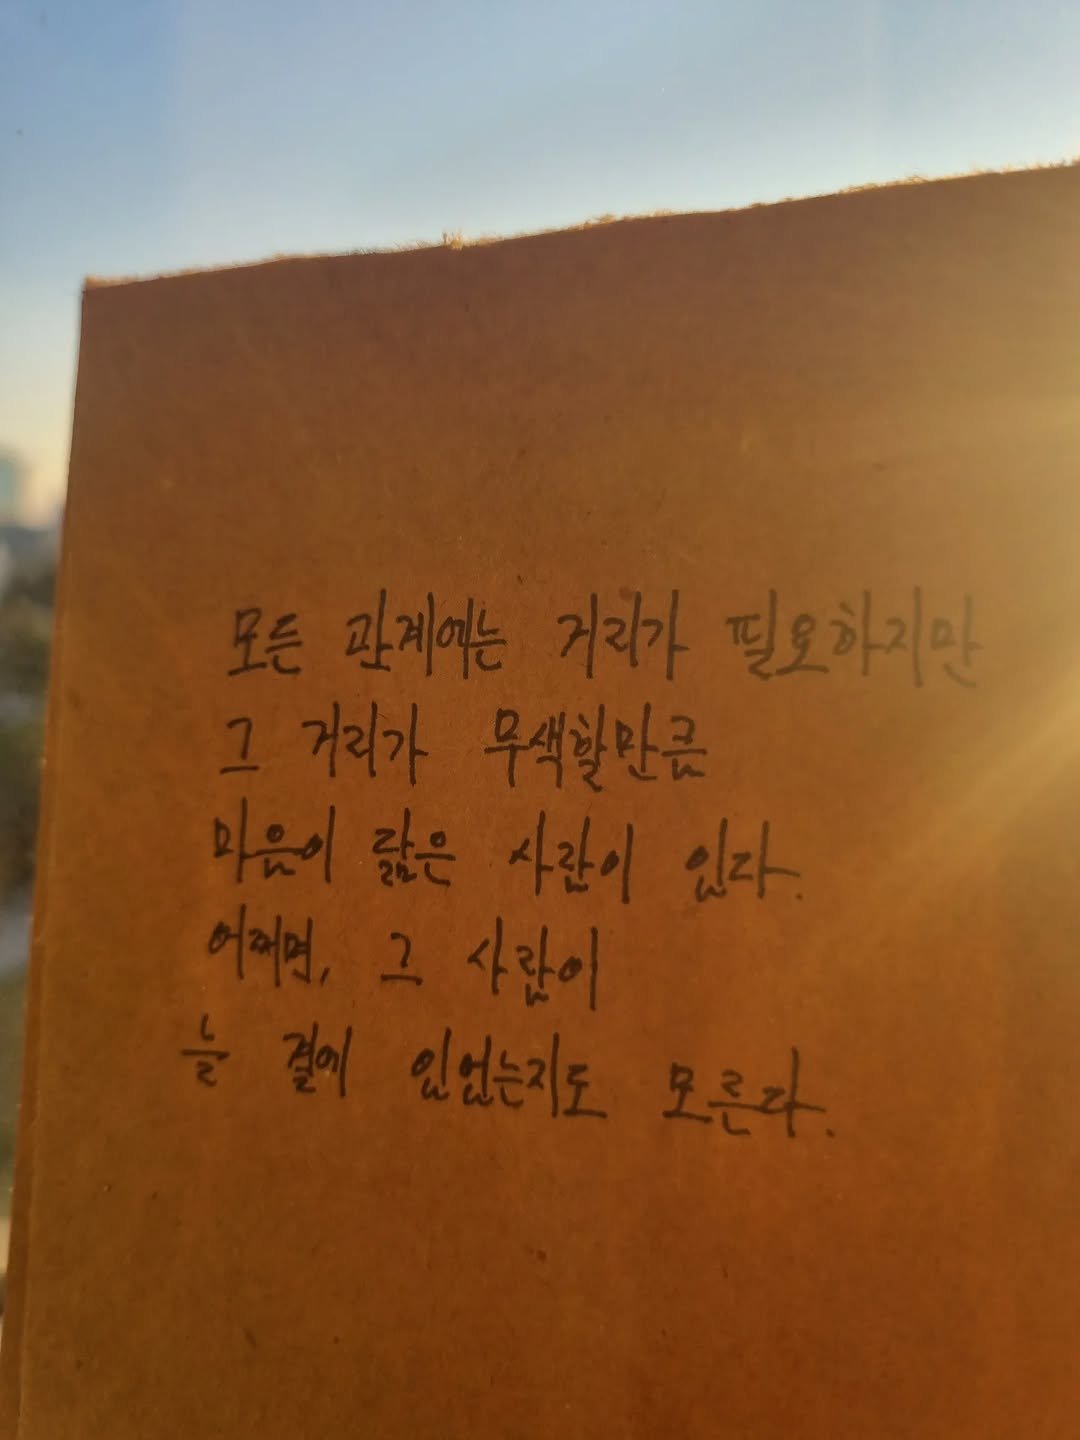 모든 관계에는 거리가 필요하지만
그 거리가 무색할만큼
마음이 닮은 사람이 있다.
어쩌면, 그 사람이
늘 곁에 있었는지도 모른다.